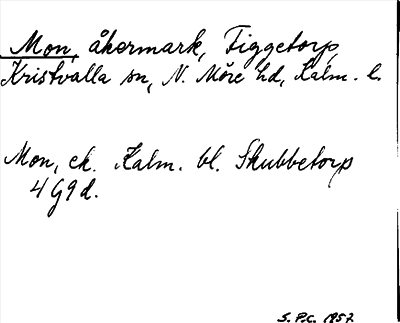 Mon, åkermark, Tiggetorp,
Kristvalla sn, N. Möre hd, Kalm. l.
Mon, ek. Kalm. bl. Skubbetorp
4 G 9 d.
S. P.C. 1957